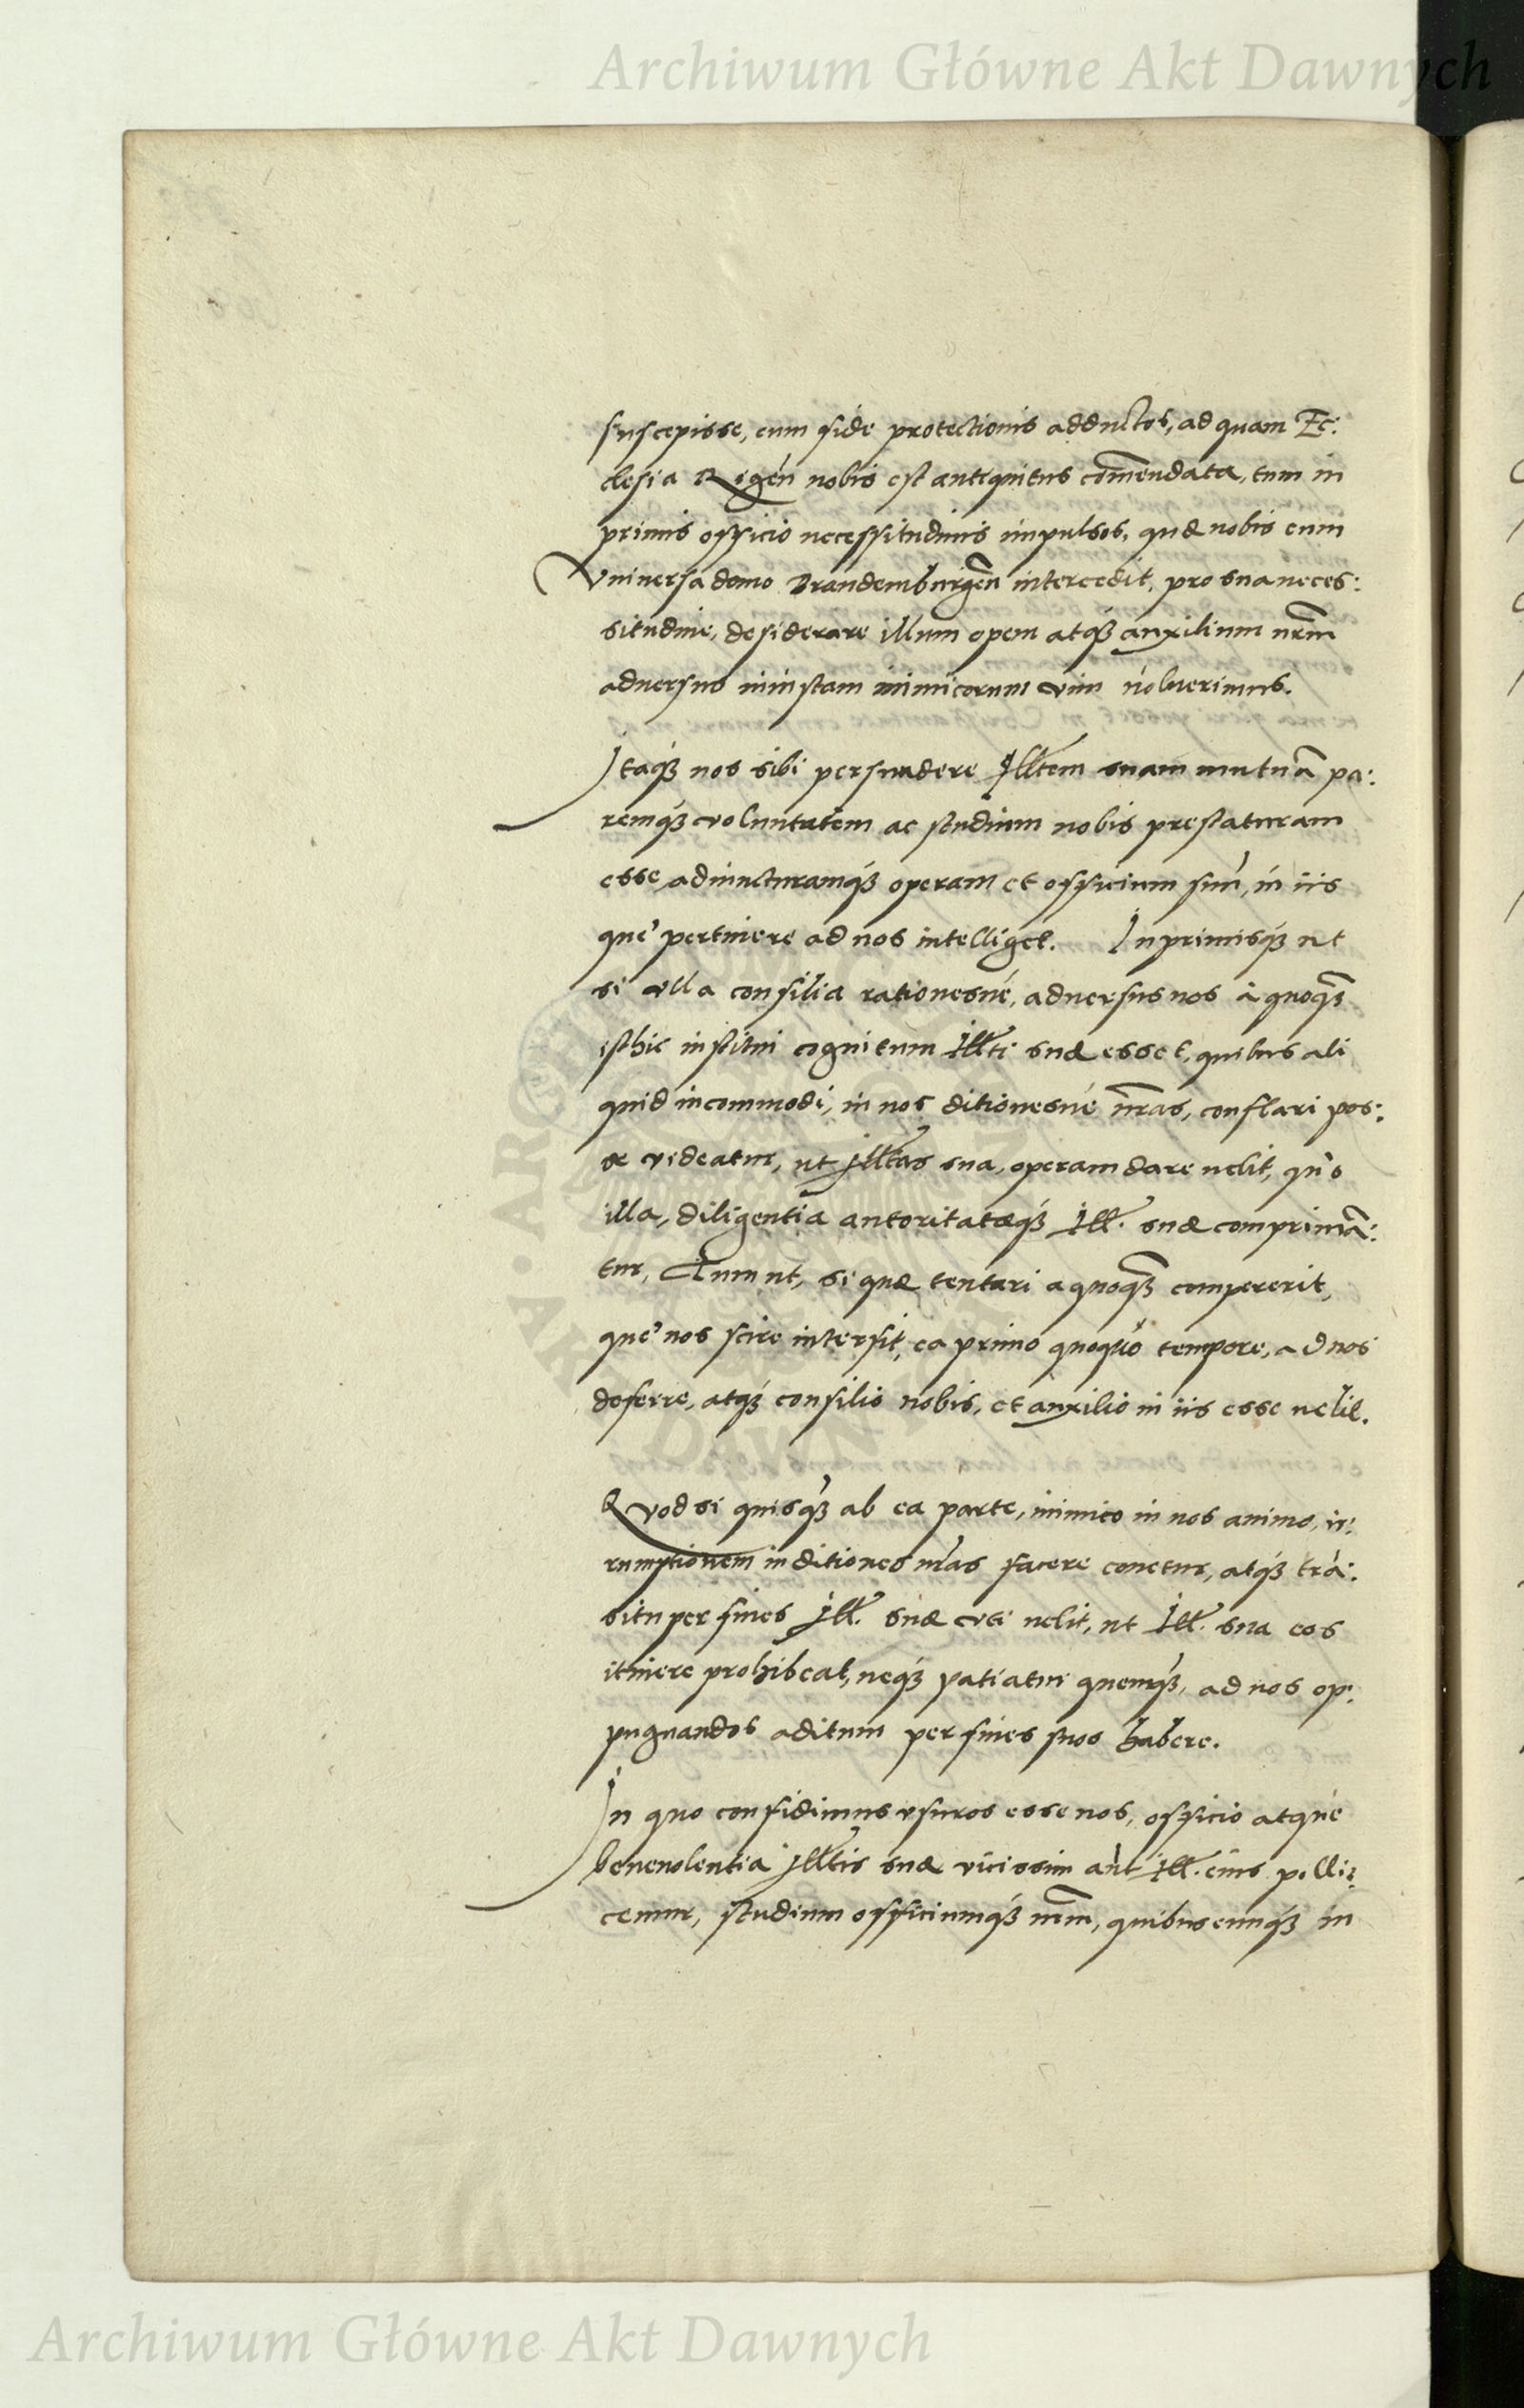 Archiwum Główne Akt Dawnych
suscepisse, cum fide protectionis adductos, ad quam Ec:
clesia Rigen̄ nobis est antiquitus com̄endata, tum in
primis officio necessitudinis impulsos, quæ nobis cum
Vniversa domo Brandemburgen̄ intercedit, pro sua neces:
situdine, desiderare illum opem atq₃ auxilium nr̄m
aduersus iniustam inimicorum vim noluerimus.
Itaq₃ nos sibi persuadere Illtem suam mutuā pa:
remq₃ voluntatem ac studium nobis prestaturam
esse adiuncturamq₃ operam et officium suū, in iis
que pertinere ad nos intelliget. Inprimisq₃ ut
si vlla consilia rationesue, aduersus nos à quoq₃
isthic institui cognitum Illti suæ esset, quibus ali
quid incommodi, in nos ditionesue nr̄as, conflari pos:
se videatur, ut Illtas sua, operam dare uelit, quo
illa, diligentia autoritateq₃ Ill. suæ comprimā:
tur, Tum ut, si quæ tentari a quoq₃ compererit,
que nos scire intersit, ea primo quoquo tempore, ad nos
deferre, atq₃ consilio nobis, et auxilio in iis esse uelit.
Quod si quisq₃ ab ea parte, inimico in nos animo, ir:
rumptionem in ditiones nr̄as facere conetur, atq₃ trā:
situ per fines Ill. suæ vti uelit, ut Ill. sua eos
itinere prohibeat, neq₃ patiatur quemq₃, ad nos op:
pugnandos aditum per fines suos habere.
In quo confidimus vsuros esse nos, officio atque
beneuolentia Illtis suæ vicissim aūt Ill. eius polli:
cemur, studium officiumq₃ nr̄m, quibuscunq₃ in
Archiwum Główne Akt Dawnych